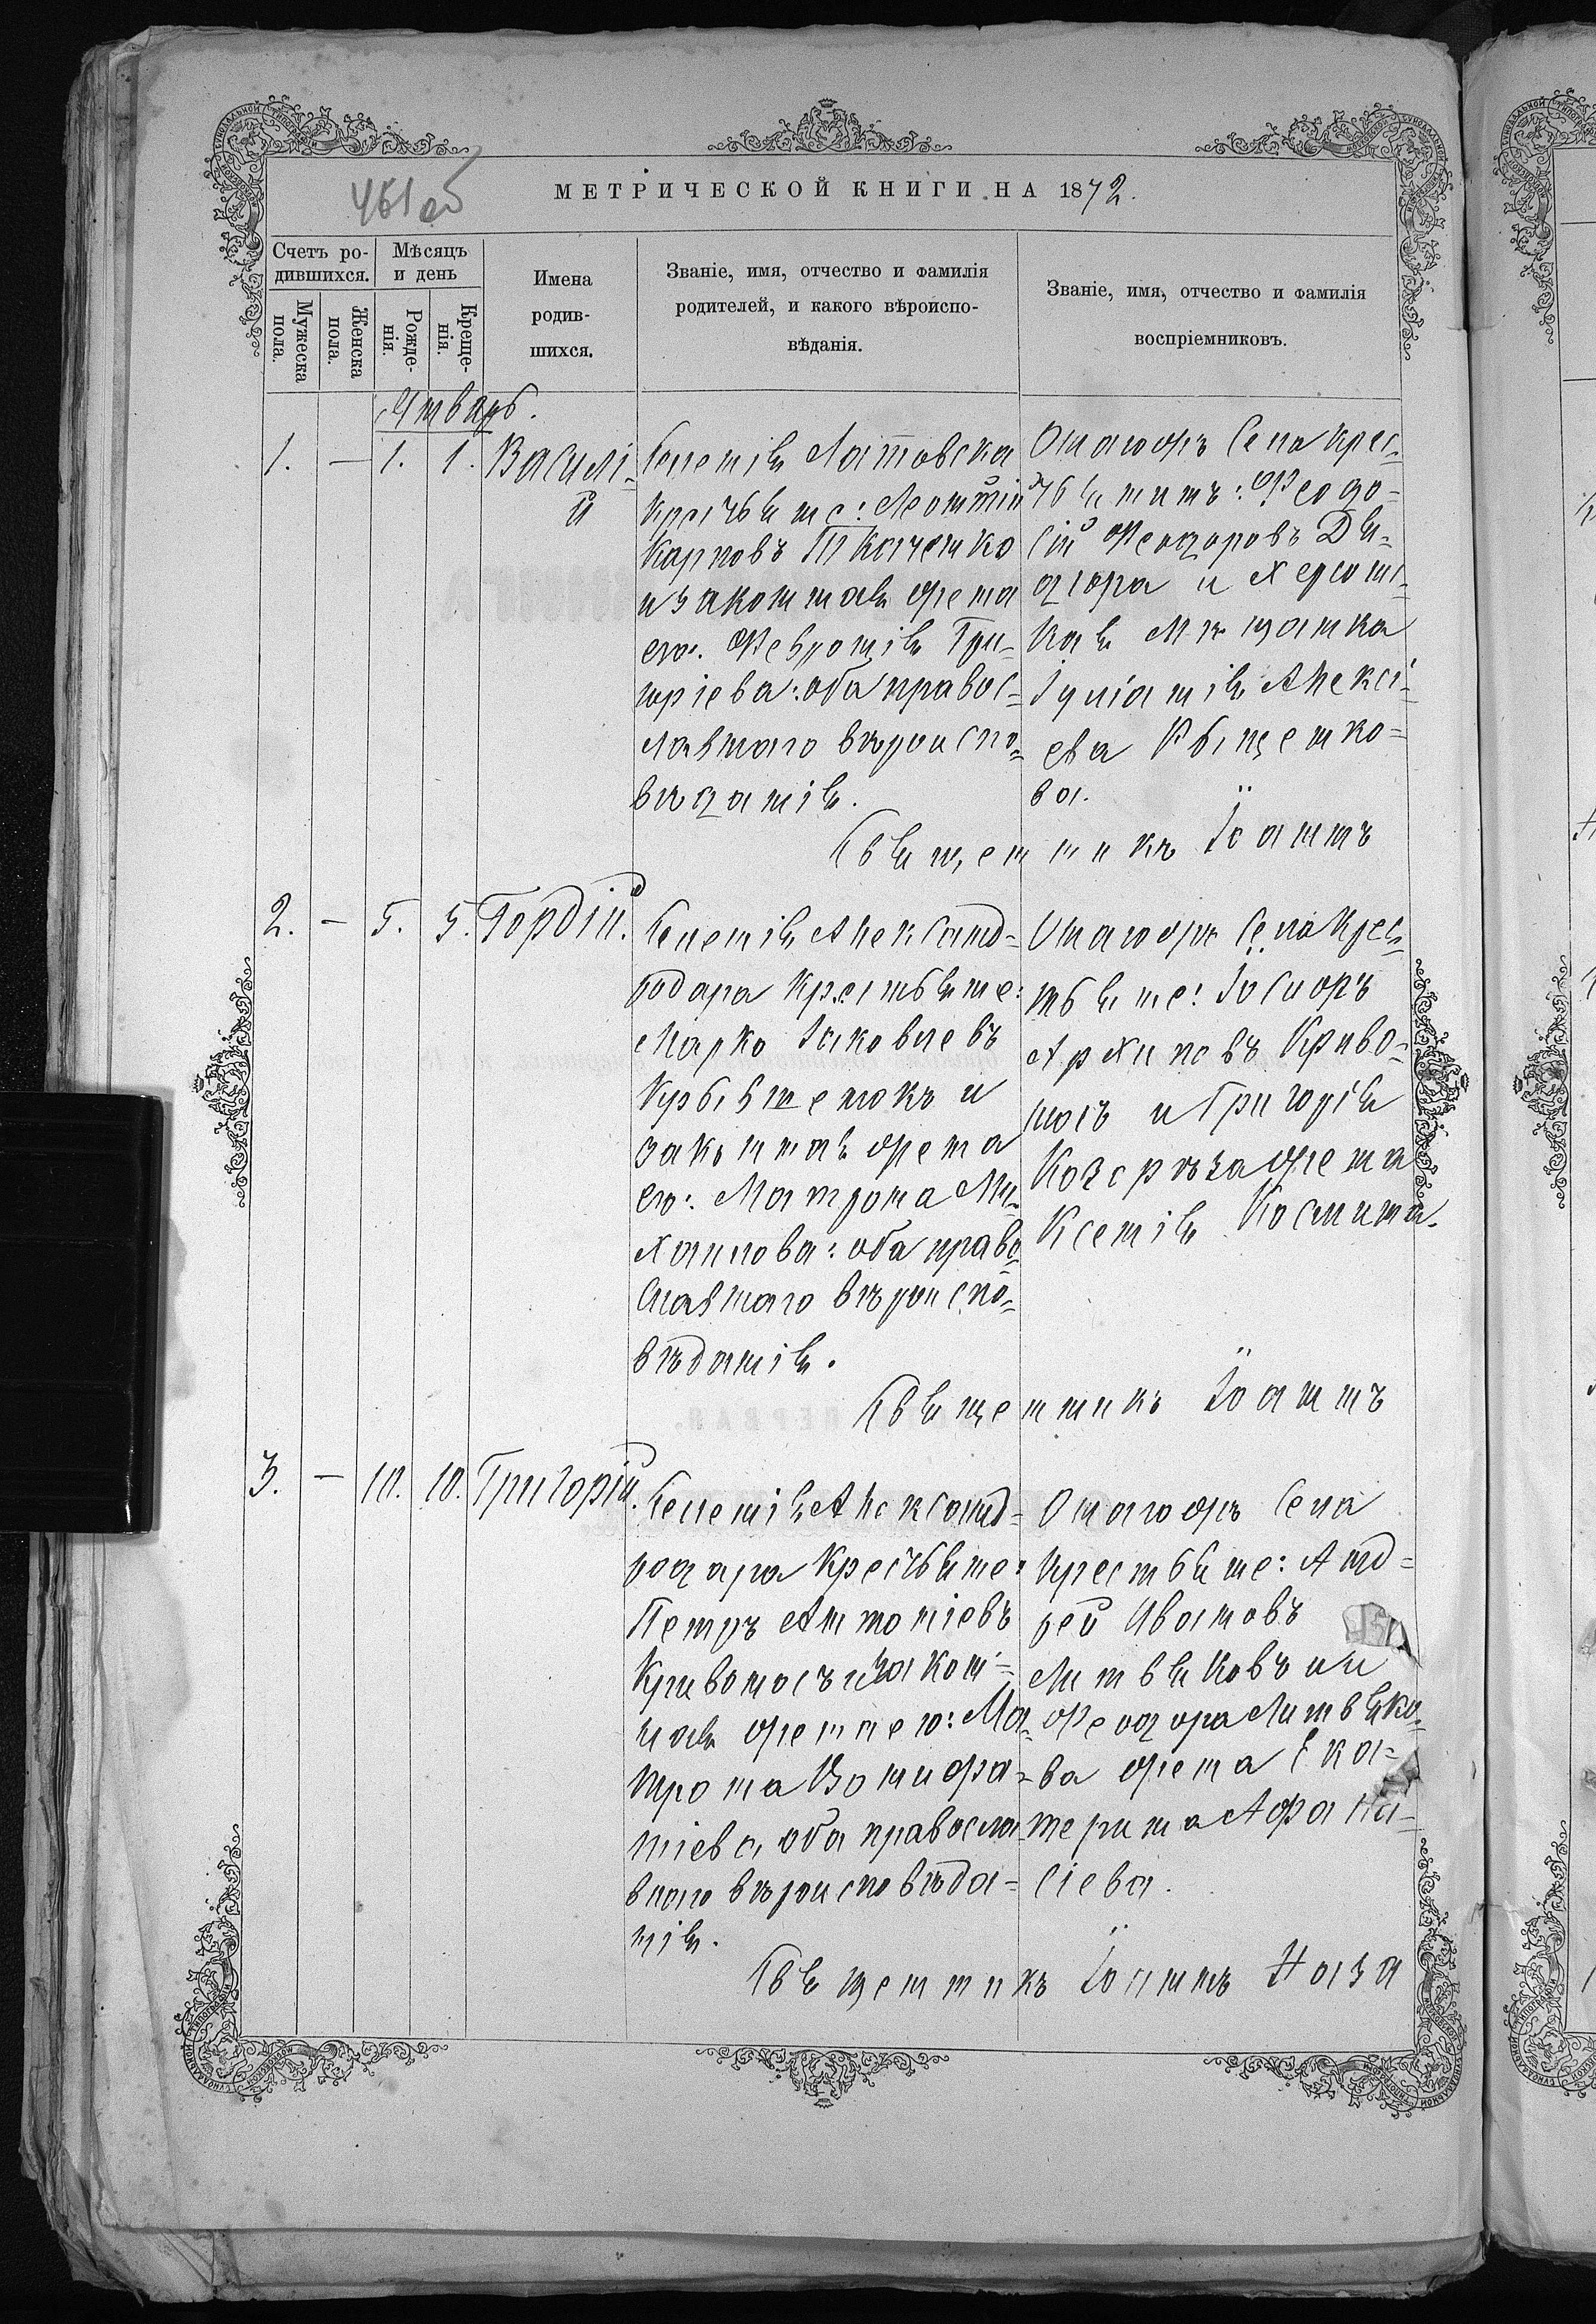 461 об
МЕТРИЧЕСКОЙ КНИГИ НА 1872.
Счетъ ро-
дившихся.
Мужеска
пола.
Женска
пола.
Мѣсяцъ
и день
Рожде-
нія.
Креще-
нія.
Имена
родив-
шихся.
Званіе, имя, отчество и фамилія
родителей, и какого вѣроиспо-
вѣданія.
Званіе, имя, отчество и фамилія
воспріемниковъ.
Январь.
1. — 1. 1. Василі=
й
Селенія Латовска
Крестьяне: Леонтій
Карповъ Ткаченко
и законная жена
его: Февронія Гри=
горіева: оба правос=
лавнаго вѣроиспо=
вѣданія.
Онагожъ Села Крес=
тьянинъ: Феодо=
сій Феодоровъ Дя=
дюра и Херсонс=
кая Мѣщанка
Іуліанія Алексі=
ева
ва.
Священникъ Іоаннъ
2. — 5. 5. Гордій.
Селенія Александ=
родара Крестьяне:
Марко Іаковлевъ
и
законная жена
его: Матрона Ми=
хаилова: оба право=
славнаго вѣроиспо=
вѣданія.
Онагожъ Села Крес=
тьяне: Їосифъ
Архиповъ Криво=
носъ и Григорія
Козсрѣза жена
Ксенія Космина.
Священникъ Їоаннъ
3. — 10. 10. Григорій.
Селенія Александ=
родара Крестьяне:
Петръ Антоніевъ
Кривоносъ и закон=
ная жена его: Ма=
трона Вонифа=
тіева, оба правосла=
внаго вѣроисповѣда=
нія.
Онагожъ Села
Крестьяне: Анд=
рей Ивановъ
Литвяковъ и
Феодора Литвяко=
ва жена Ека=
терина Афана=
сіева.
Священникъ Їоаннъ Наза